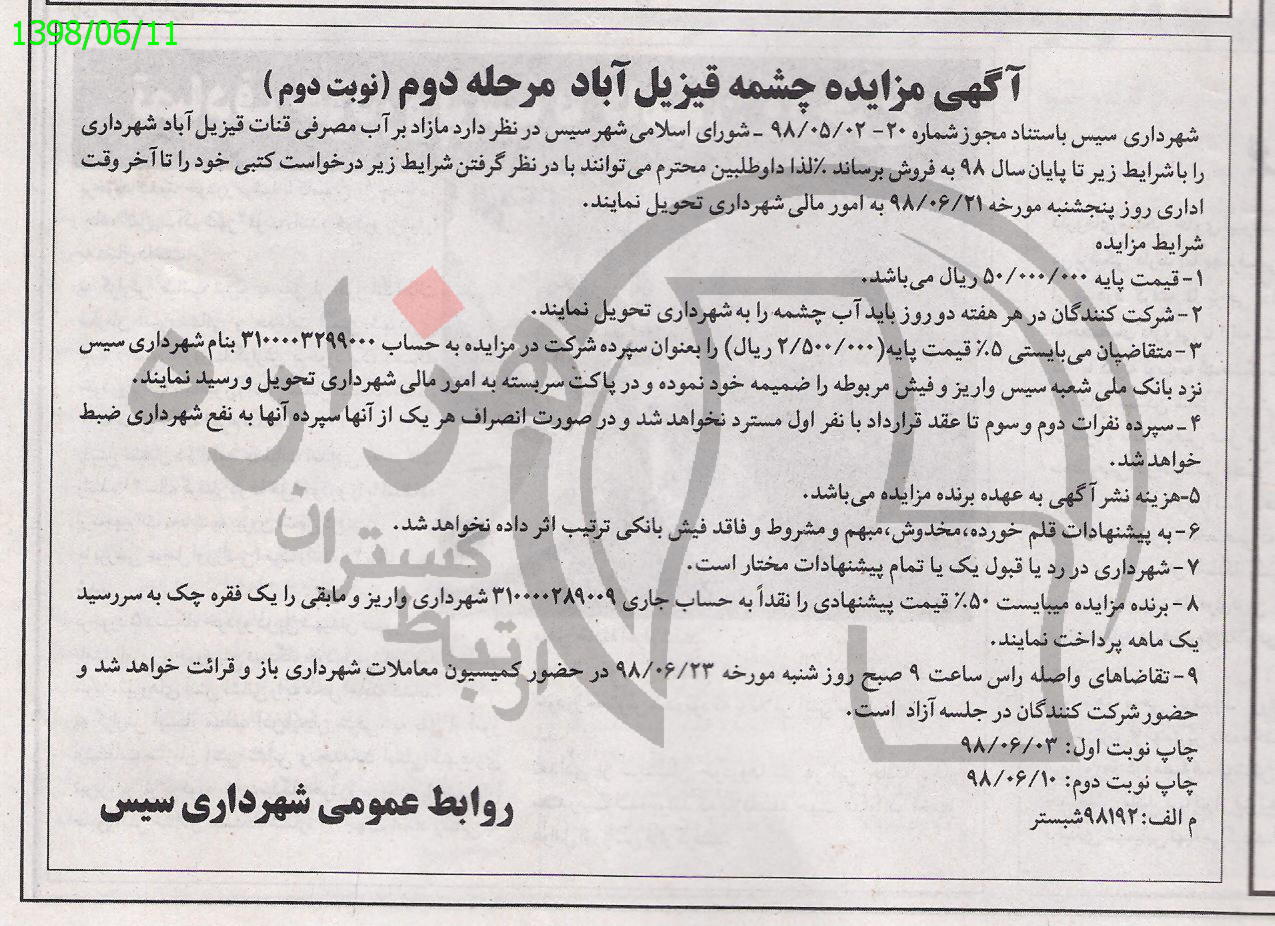 1398/06/11
آگهی مزایده چشمه قیزیل آباد مرحله دوم (نوبت دوم)
شهرداری سیس باستناد مجوز شماره ۲۰- ۹۸/۰۵/۰۲ ـ شورای اسلامی شهر سیس در نظر دارد مازاد بر آب مصرفی قنات قیزیل آباد شهرداری
را با شرایط زیر تا پایان سال ۹۸ به فروش برساند ٪لذا داوطلبین محترم می‌توانند با در نظر گرفتن شرایط زیر درخواست کتبی خود را تا آخر وقت
اداری روز پنجشنبه مورخه ۹۸/۰۶/۲۱ به امور مالی شهرداری تحویل نمایند.
شرایط مزایده
۱- قیمت پایه ۵۰/۰۰۰/۰۰۰ ریال می‌باشد.
۲- شرکت کنندگان در هر هفته دو روز باید آب چشمه را به شهرداری تحویل نمایند.
۳- متقاضیان می‌بایستی ۵٪ قیمت پایه(۲/۵۰۰/۰۰۰ ریال) را بعنوان سپرده شرکت در مزایده به حساب ۳۱۰۰۰۰۳۲۹۹۰۰۰ بنام شهرداری سیس
نزد بانک ملی شعبه سیس واریز و فیش مربوطه را ضمیمه خود نموده و در پاکت سربسته به امور مالی شهرداری تحویل و رسید نمایند.
۴ـ سپرده نفرات دوم و سوم تا عقد قرارداد با نفر اول مسترد نخواهد شد و در صورت انصراف هر یک از آنها سپرده آنها به نفع شهرداری ضبط
خواهد شد.
۵-هزینه نشر آگهی به عهده برنده مزایده می‌باشد.
۶- به پیشنهادات قلم خورده،مخدوش،مبهم و مشروط و فاقد فیش بانکی ترتیب اثر داده نخواهد شد.
۷- شهرداری در رد یا قبول یک یا تمام پیشنهادات مختار است.
۸- برنده مزایده میبایست ۵۰٪ قیمت پیشنهادی را نقداً به حساب جاری ۳۱۰۰۰۰۲۸۹۰۰۹ شهرداری واریز و مابقی را یک فقره چک به سررسید
یک ماهه پرداخت نمایند.
۹- تقاضاهای واصله راس ساعت ۹ صبح روز شنبه مورخه ۹۸/۰۶/۲۳ در حضور کمیسیون معاملات شهرداری باز و قرائت خواهد شد و
حضور شرکت کنندگان در جلسه آزاد است.
چاپ نوبت اول: ۹۸/۰۶/۰۳
چاپ نوبت دوم: ۹۸/۰۶/۱۰
م الف:۹۸۱۹۲شبستر
روابط عمومی شهرداری سیس
هزاره
ارتباط
گستران